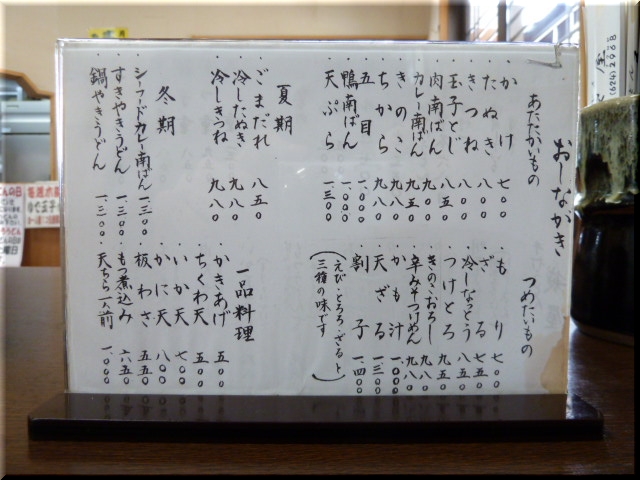 おしながき
あたたかいもの
・かけ 七〇〇
・たぬき 八〇〇
・きつね 八〇〇
・玉子とじ 八〇〇
・肉南ばん 九〇〇
・カレー南ばん 九五〇
・きのこ 九八〇
・ちから 九八〇
・五目 一、〇〇〇
・鴨南ばん 一、〇〇〇
・天ぷら 一、三〇〇
つめたいもの
・もり 七〇〇
・ざる 七五〇
・冷しなっとう 八五〇
・つけとろ 九五〇
・きのこおろし 九八〇
・辛みそつけめん 九八〇
・かも汁 一、〇〇〇
・天ざる 一、三〇〇
・割子 一、四〇〇
(えび・とろろ・ざると
三種の味です)
夏期
・ごまだれ 八五〇
・冷したぬき 九八〇
・冷しきつね 九八〇
冬期
・シーフードカレー南ばん 一、三〇〇
・すきやきうどん 一、三〇〇
・鍋やきうどん 一、三〇〇
一品料理
・かきあげ 五〇〇
・ちくわ天 五〇〇
・いか天 七〇〇
・かに天 八〇〇
・板わさ 五五〇
・もつ煮込み 六五〇
・天ちら一人前 一、〇〇〇
(624)2968